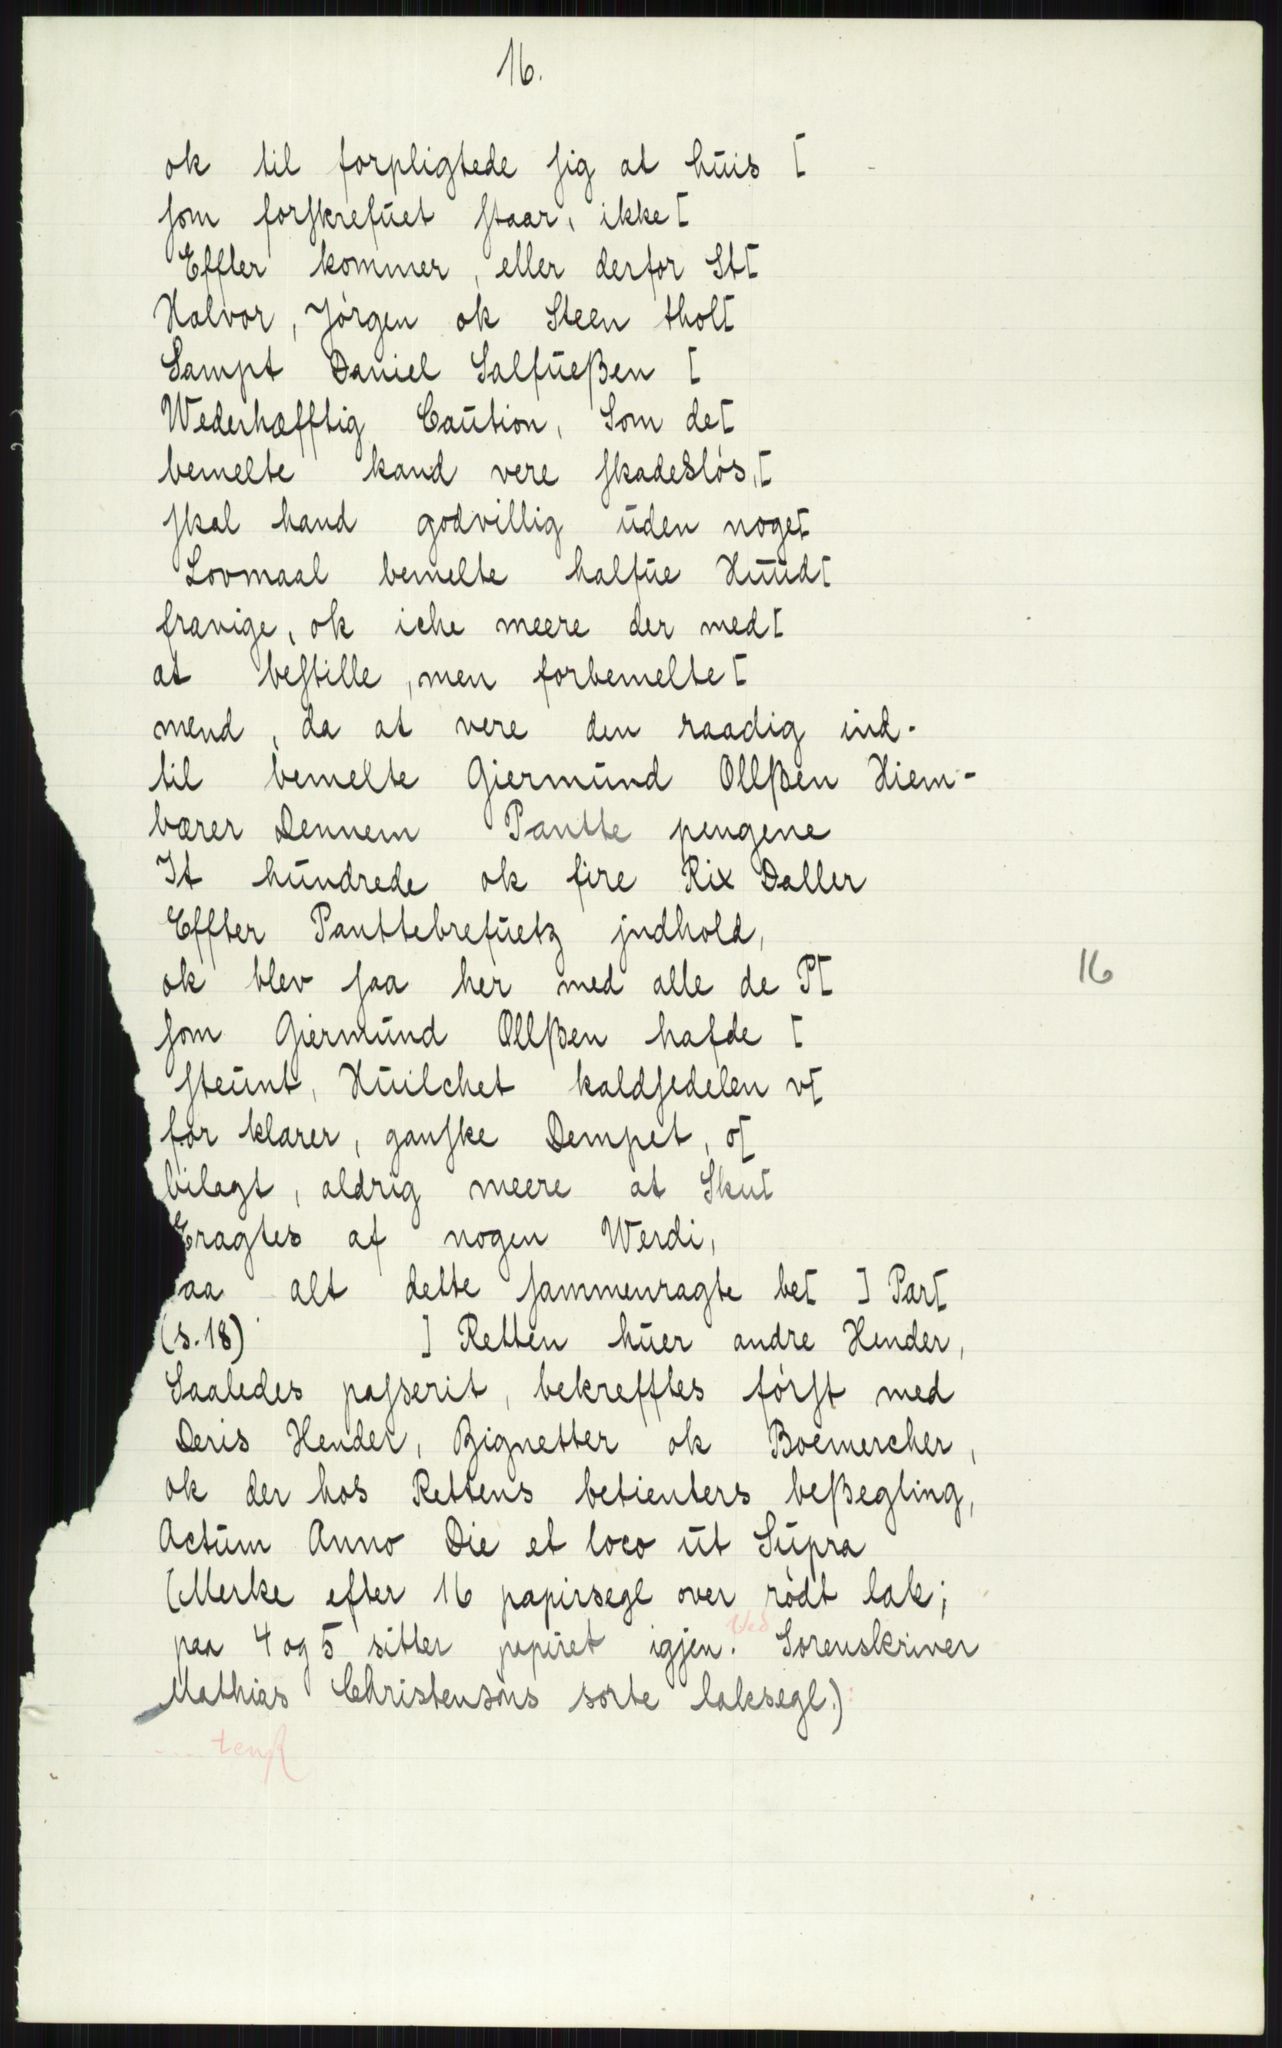 16.
ok til forpligtede sig at huis [
som forskrefuet staar, ikke [
Effler kommer, eller derfor St[
Halvor, Jørgen ok Steen thol[
Sampt Daniel Salfueßen [
Wederhæfftig Caution, Som de[
bemelte kand vere skadesløs,[
skal hand godvillig uden noge[
Lovmaal bemelte halfue Huud[
fravige, ok iche meere der med[
at bestille, men forbemelte[
mend, da at vere den raadig ind-
til bemelte Giermund Ollßen Hiem-
bærer Dennem Pantte pengene
It hundrede ok fire Rix Daller
Effter Panttebrefuetz jndhold,
ok blev saa her med alle de P[
16
som Giermund Ollßen hafde [
steunt, Huilchet kaldsedelen v[
før klarer, ganske Dempet, o[
bilagt, aldrig meere at Sku[
Eragtes af nogen Werdi,
aa alt dette sammenragte be[ ] Par[
(s.18) ] Retten huer andre Hender,
Saaledes passerit, bekrefftes først med
Deris Hender, Zignetter ok Boemercher,
ok der hos Rettens betienters beßegling,
Actum Anno Die et loco ut Supra
(Merke efter 16 papirsegl over rødt lak;
paa 4 og 5 sitter papiret igjen. Ved Sorenskriver
Mathias Christensøns sorte laksegl.)
....tensR